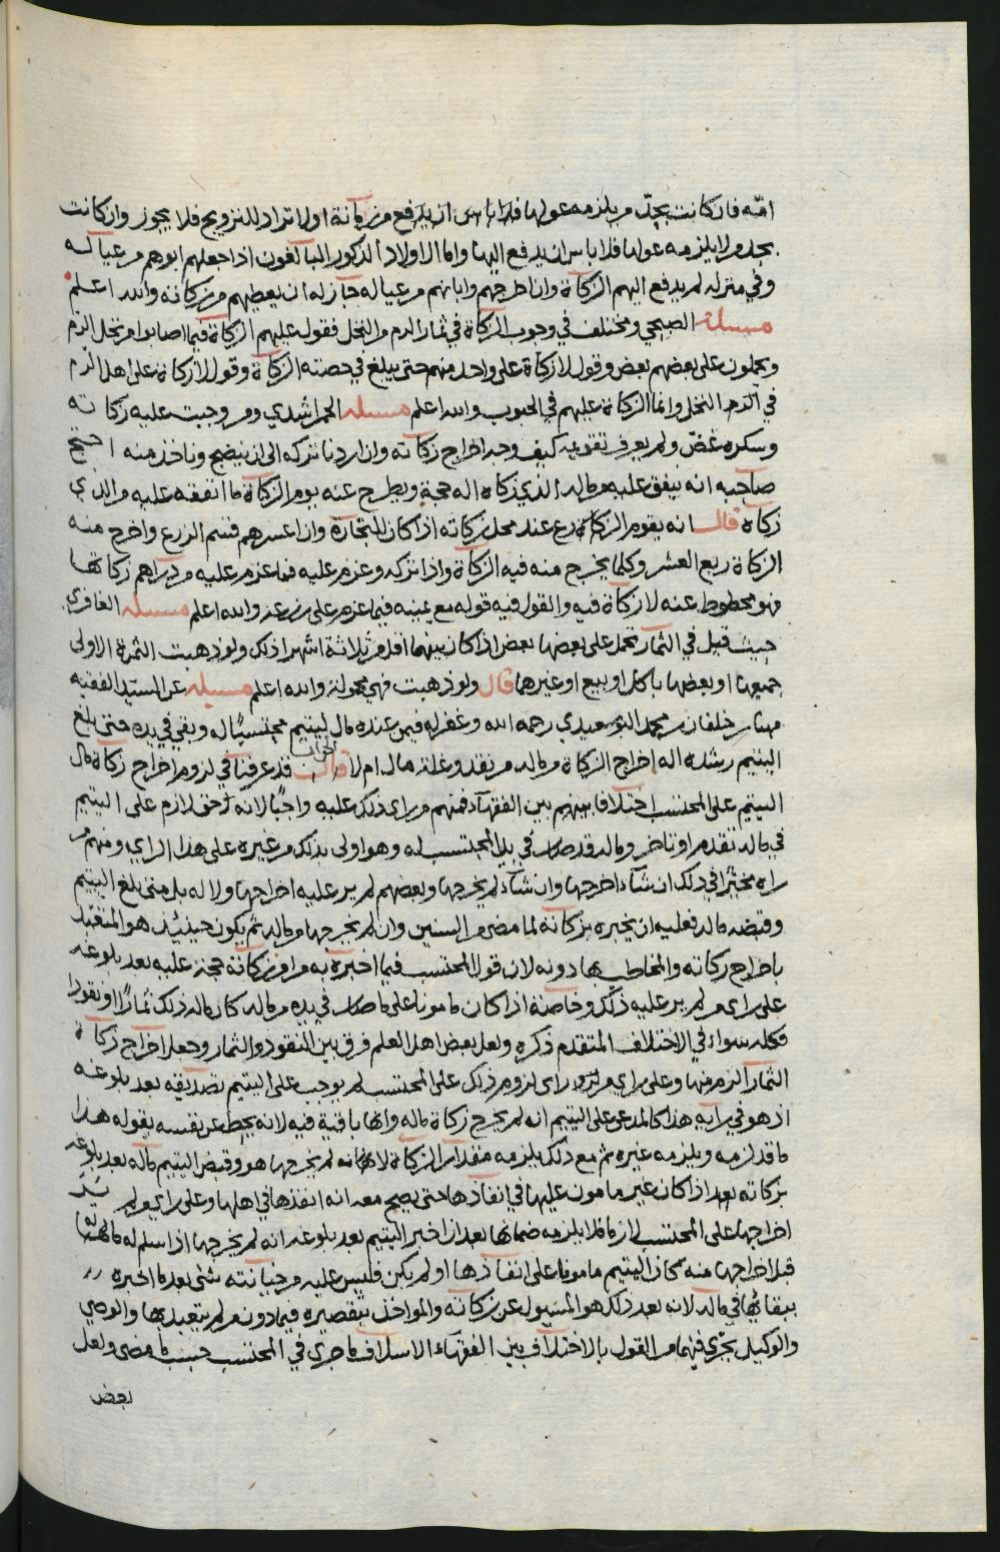 امّه فان كانت بحدّ من يلزمه عولها فلا باس ان يدفع من زكاته اولا تراد للتزويج فلا يجوز وان كانت
بحد من لا يلزمه عولها فلا باس ان يدفع اليها واما الاولاد الذكور البالغون اذا جعلهم ابوهم من عياله
وفي منزله لم يدفع اليهم الزكاة وان اخرجهم وابانهم من عياله جاز له ان يعطيهم من زكاته والله اعلم
مسئلة الصبحي ومختلف في وجوب الزكاة في ثمار الرم من النخل فقول عليهم الزكاة فيما اصابوا من نخل الرم
ويحملون على بعضهم بعض وقول لا زكاة على واحد منهم حتى يبلغ في حصته الزكاة وقول لا زكاة على اهل الرم
في الرم النخل وانما الزكاة عليهم في الحبوب والله اعلم مسئله الحمراشدي ومن وجبت عليه زكاته
وسكره غضّ ولم يعرف تقويمه كيف وجه اخراج زكاته وان اردنا نتركه الى ان ينضج وناخذ منه احتج
صاحبه انه ينفق عليه من ماله الذي زكاه اله حجة ويطرح عنه يوم الزكاة ما انفقه عليه من الذي
زكاه قال انه يقوم الزرع عند محل زكاته اذا كان للتجارة وان اعسرهم قسم الزرع واخرج منه
الزكاة ربع العشر وكلما يخرج منه فيه الزكاة واذا تركه وغرم عليه فما غرم عليه من دراهم زكاتها
فهو محطوط عنه لا زكاة فيه والقول فيه قوله مع يمينه فيما غرم على زرعه والله اعلم مسئله الغافري
حيث قيل في الثمار تحمل على بعضها بعض اذا كان بينهما اقل من ثلاثة اشهر اذلك ولو ذهبت الثمرة الاولى
جميعها او بعضها باكل او بيع او غيرها قال ولو ذهبت فهي محمولة والله اعلم مسئله عن السيد الفقيه
مهنا بن خلفان بن محمد البوسعيدي رحمه الله وغفر له فيمن عنده مال ليتيم محتسبًا له وبقي في يده حتى بلغ
اليتيم رشده اله اخراج الزكاة من ماله من نقد وغلة مال ام لا قال قد عرفنا في لزوم اخراج زكاة مال
اليتيم على المحتسب اختلافا بينهم بين الفقهاء فمنهم من راى ذلك عليه واجبًا لانه حق لازم على اليتيم
في ماله تقدم او تاخر وماله قد صار في يد المحتسب له وهو اولى بذلك من غيره على هذا الراي ومنهم من
راه مخيّرًا في ذلك ان شآء اخرجها وان شآء لم يخرجها وبعضهم لم ير عليه اخراجها ولا له بل متى بلغ اليتيم
وقبضه ماله فعليه ان يخبره بزكاته لما مضى من السنين وان لم يخرجها من ماله ثم يكون حينئذ هو المتعبّد
باخراج زكاته والمخاطب بها دونه لان قول المحتسب فيما اخبره به من امر زكاته حجة عليه بعد بلوغه
على راي من لم ير عليه ذلك وخاصة اذا كان مامونا على ما صار في يده من ماله كان ماله ذلك ثمارًا او نقودا
فكله سواء في الاختلاف المتقدم ذكره ولعل بعض اهل العلم فرق بين النقود والثمار وجعل اخراج زكاة
الثمار الزم منها وعلى راي من راى لزوم ذلك على المحتسب لم يوجب على اليتيم تصديقه بعد بلوغه
اذ هو في رايه هذا كالمدعي على اليتيم انه لم يخرج زكاة ماله وانها باقية فيه لانه يحط عن نفسه بقوله هذا
ما قد لزمه ويلزمه غيره ثم مع ذلك يلزمه مقدار الزكاة لانه لم يخرجها هو وقبض اليتيم ماله بعد بلوغه
بزكاته بعد اذا كان غير مامون عليها في انفاذها حتى يصح معه انه انفذها في اهلها وعلى راي من لم ير
اخراجها على المحتسب لازما فلا يلزمه ضمانها بعد ان اخبر اليتيم بعد بلوغه انه لم يخرجها اذا سلم له ماله
قبل اخراجها منه كان اليتيم مامونا على انفاذها او لم يكن فليس عليه من خيانته شئ بعد ما اخبره
ببقائها في ماله لانه بعد ذلك هو المسئول عن زكاته والمواخذ بتقصيره فيها دون من لم يتعبد بها والوصي
والوكيل يجري فيهما من القول بالاختلاف بين الفقهاء الاسلاف ما جرى في المحتسب حسب ما مضى ولعل
بعض